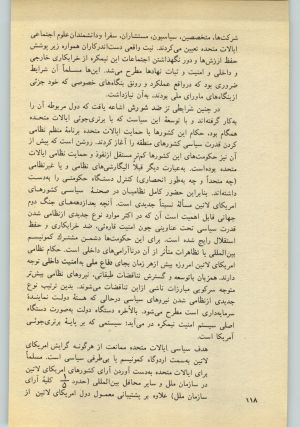 شرکت‌ها، متخصصین، سیاسیون، مستشاران، سفرا و دانشمندان علوم اجتماعی
ایالات متحده تعیین می‌کردند. نیت واقعی دست‌اندرکاران همواره زیر پوشش
حفظ ارزش‌ها و دور نگهداشتن اجتماعات این نیمکره از خرابکاری خارجی
و داخلی و امنیت و ثبات نهادها مطرح می‌شد. این‌ها مسلماً آن شرایط
ضروری بود که درواقع عملکرد و رونق بنگاه‌های خصوصی که خود جزئی
از بنگاه‌های ماورای ملی بودند، به‌آن نیازداشت.
در چنین شرایطی تز ضد شورش اشاعه یافت که دول مربوطه آن را
به‌کار گرفته‌اند و با توسعهٔ این سیاست که با برتری‌جوئی ایالات متحده
همگام بود، حکام این کشورها با حمایت ایالات متحده برنامهٔ منظم نظامی
کردن قدرت سیاسی کشورهای منطقه را آغاز کردند. روشن است که پیش از
آن نیز حکومت‌های این کشورها کم‌تر مستقل ازنفوذ و حمایت نظامی ایالات
متحده بوده‌است. به‌عبارت دیگر قبلاً الیگارشی‌های نظامی و یا غیرنظامی
(چه متعدداً و چه به‌طور انحصاری) کنترل دستگاه حکومتی را به‌دست
داشته‌اند. بنابراین حضور کامل نظامیان در صحنهٔ سیاسی کشورهای
امریکای لاتین مسألهٔ نسبتاً جدیدی است. آنچه بعدازدهه‌های جنگ دوم
جهانی قابل اهمیت است آن که در اکثر موارد نوع جدیدی ازنظامی شدن
قدرت سیاسی تحت عناوینی چون امنیت قاره‌ئی، ضد خرابکاری و حفظ
استقلال رایج شده است. برای این حکومت‌ها دشمن مشترک کمونیسم
بین‌المللی یا تظاهرات متأثر از آن درناآرامی‌های داخلی است. حکام نظامی
امریکای لاتین امروزه بیش ازهر زمان بجای دفاع ملی به‌امنیت داخلی توجه
دارند. همزبان باتوسعه و گسترش تناقضات طبقاتی، نیروهای نظامی بیش‌تر
متوجه سرکوبی مبارزات ناشی ازاین تناقضات می‌شوند. بدین ترتیب نوع
جدیدی ازنظامی شدن نیروهای سیاسی درحالی که هستهٔ دولت نمایندهٔ
سرمایه‌داری است مطرح می‌شود. بالاخره دستگاه دولت به‌صورت دستگاه
اصلی سیستم امنیت نیمکره در می‌آید؛ سیستمی که بر پایهٔ برتری‌جوئی
آمریکا است.
هدف سیاسی ایالات متحده ممانعت از هرگونه گرایش امریکای
لاتین به‌سمت اردوگاه کمونیسم یا بی‌طرفی سیاسی است. مسلماً
برای ایالات متحده به‌دست آوردن آرای کشورهای امریکای لاتین
در سازمان ملل و سایر محافل بین‌المللی (حدود ۱/۵ کلیهٔ آرای
سازمان ملل) علاوه بر پشتیبانی معمول دول امریکای لاتین از
۱۱۸